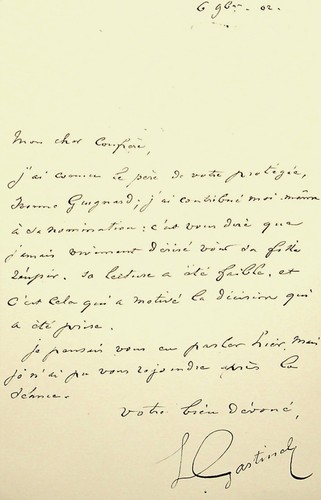 6 9bre 02.
Mon cher Confrère,
j'ai connu le père de votre protégée,
Guignard; j'ai contribué moi-même
à sa nomination: c'est vous dire que
j'aurais vivement désiré voir sa fille
réussir. Sa lecture a été faible, et
c'est cela qui a motivé la décision qui
a été prise.
je pensais vous en parler hier, mais
je n'ai pu vous rejoindre après la
séance.
Votre bien dévoué,
L Gastinel